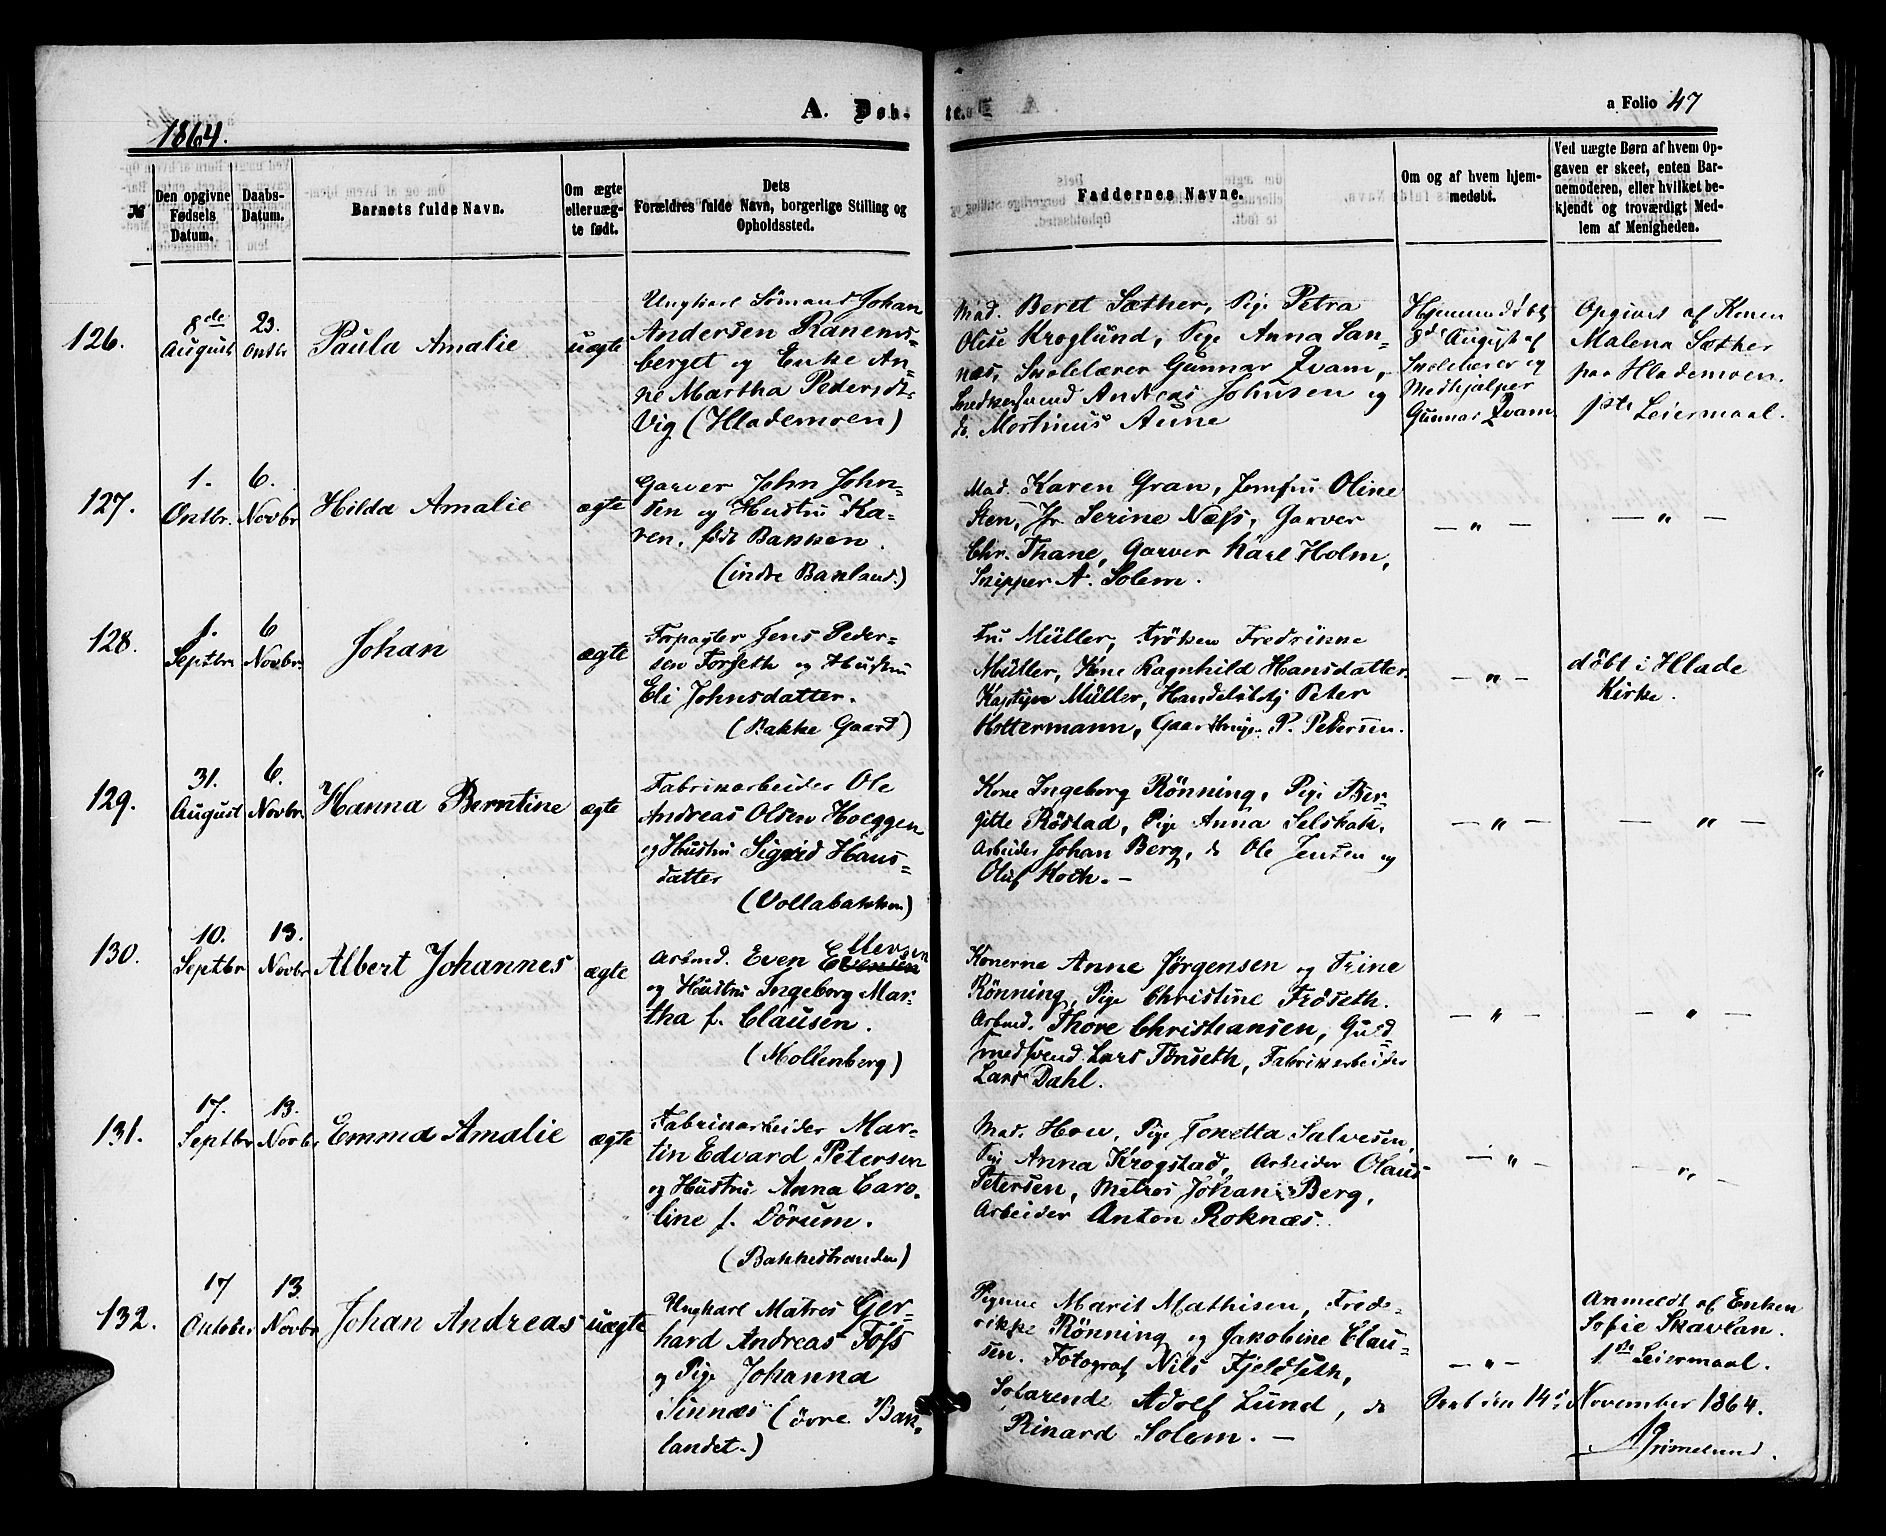 A. Døb-
te.
a Folio 47
1864.
№
Den opgivne Fødsels Datum.
Daabs-Datum.
Barnets fulde Navn.
Om ægte eller uægte født.
Dets
Forældres fulde Navn, borgerlige Stilling og Opholdssted.
Faddernes Navne.
Om og af hvem hjemmedøbt.
Ved uægte Børn af hvem Opgaven er skeet, enten Barnemoderen, eller hvilket bekjendt og troværdigt Medlem af Menigheden.
126.
8de August
23. Octbr
Paula Amalie
uægte
Ungkarl Sömand Johan
Andersen Ranems-
berget og Enke An-
ne Martha Pedersdt.
Vig (Hlademoen)
Mad. Beret Sæther, Pige Petra
Olise Kroglund, Pige Anna San-
næs, Skolelærer Gunnar Qvam,
Snedkersvend Andreas Johnsen og
do. Mortinus Aune
Hjemmedöbt
8de August af
Skolelærer og
Medhjælper
Gunnar Qvam
Opgivet af Konen
Malena Sæther
paa Hlademoen.
1ste Leiermaal.
127.
1. Octbr.
6. Novbr
Hilda Amalie
ægte
Garver John John-
sen og Hustru Ka-
ren, född Bakken.
(indre Bakland.)
Mad. Karen Gran, Jomfru Oline
Sten, Jr Serine Næss, Garver
Chr. Thane, Garver Karl Holm,
Skipper A. Solem.
— " —
— " —
128.
1. Septbr
6 Novbr.
Johan
ægte
Forpagter Jens Peder-
sen Forseth og Hustru
Eli Johnsdatter.
(Bakke Gaard)
Fru Müller, Fröken Fredrikke
Müller, Kone Ragnhild Hansdatter
Kaptejn Müller, Handelsbetj Peter
Hottermann, Gaardbruger P. Pedersen.
— " —
döbt i Hlade
Kirke.
129.
31. August
6. Novbr.
Hanna Berntine
ægte
Fabrikarbeider Ole
Andreas Olsen Hoeggen
og Hustru Sigrid Hans-
datter
(Vollabakken)
Kone Ingeborg Rönning, Pige Ber-
gitte Röstad, Pige Anna Selsbak,
Arbeider Johan Berg, do Ole Jensen og
Oluf Koch. —
— " —
— " —
130.
10. Septbr
13. Novbr
Albert Johannes
ægte
Arbmd. Even Ellevsen
og Hustru Ingeborg Mar-
tha f. Clausen.
(Mollenberg)
Konerne Anne Jörgensen og Trine
Rönning, Pige Christine Fröseth.
Arbmd. Thore Christiansen, Guld
smedsvend Lars Tönseth, Fabrikarbeider
Lars Dahl.
— " —
— " —
131.
17. Septbr
13. Novbr
Emma Amalie
ægte
Fabrikarbeider Mar-
tin Edvard Petersen
og Hustru Anna Caro-
line f. Dörum.
(Bakkestranden)
Mad. Hou, Pige Tonetta Salvesen,
Pige Anna Krogstad, Arbeider Olaus
Petersen, Matros Johan Berg,
Arbeider Anton Roknæs.
— " —
— " —
132.
17 October
13 Novbr
Johan Andreas
uægte
Ungkarl Matros Ger-
hard Andreas Foss
og Pige Johanna
Sinnæs (övre Bak-
landet.)
Pigerne Marit Mathisen, Frede-
rikke Rönning og Jakobine Clau-
sen. Fotograf Nils Fjeldseth,
Solarende Adolf Lund, do
Rinard Solem. —
— " —
Anmeldt af Enken
Sofie Skavlan.
1ste Leiermaal.
14de November 1864.